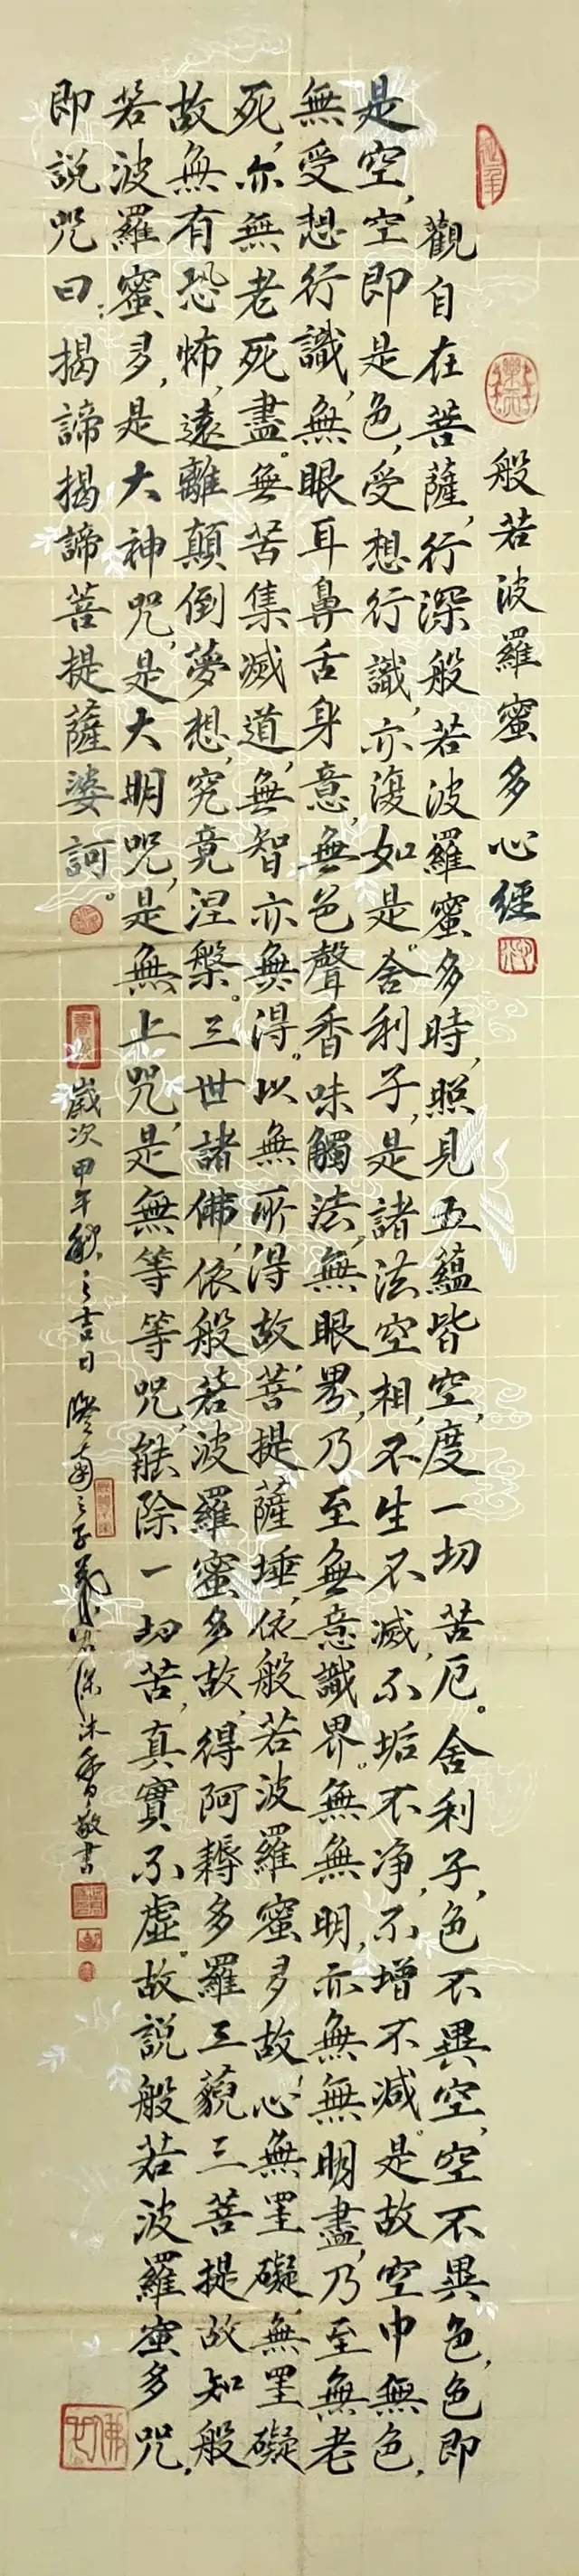 般若波羅蜜多心經
觀自在菩薩，行深般若波羅蜜多時，照見五蘊皆空，度一切苦厄。舍利子，色不異空，空不異色，色即
是空，空即是色，受想行識，亦復如是。舍利子，是諸法空相，不生不滅，不垢不净，不增不减。是故空中無色，
無受想行識，無眼耳鼻舌身意，無色聲香味觸法，無眼界，乃至無意識界。無無明，亦無無明盡，乃至無老
死，亦無老死盡。無苦集滅道，無智亦無得。以無所得故，菩提薩埵，依般若波羅蜜多故，心無罣礙，無罣礙
故，無有恐怖，遠離顛倒夢想，究竟涅槃。三世諸佛，依般若波羅蜜多故，得阿耨多羅三藐三菩提，故知般
若波羅蜜多，是大神咒，是大明咒，是無上咒，是無等等咒，能除一切苦，真實不虛。故説般若波羅蜜多咒，
即説咒曰：揭諦揭諦菩提薩婆訶。
歲次甲午秋之吉日 沐香敬書
佛